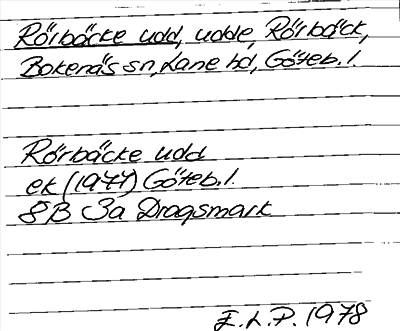 Rörbäcke udd, udde, Rörbäck,
Bokenäs sn, Lane hd, Göteb. l.
Rörbäcke udd
ek (1977) Göteb. l.
8B 3a Dragsmark
E.L.P. 1978